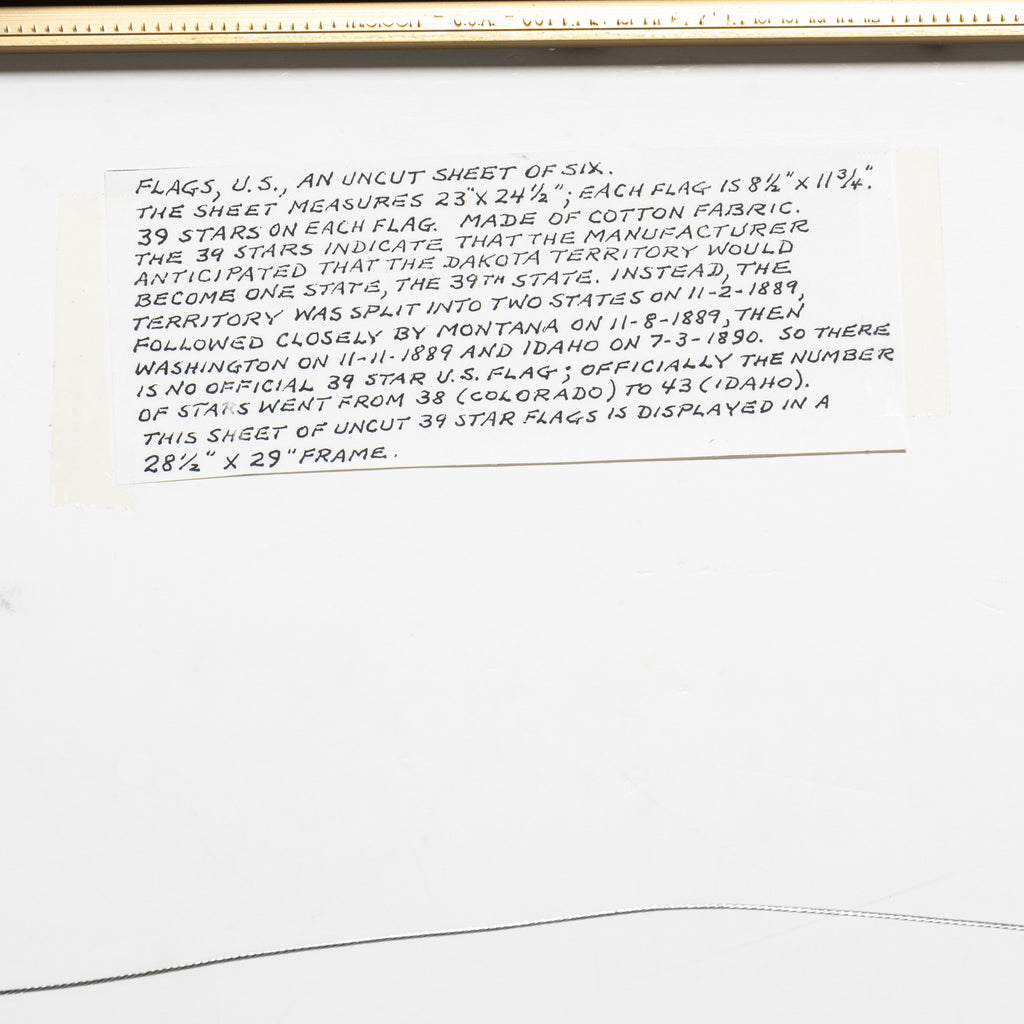 U.S.A.
FLAGS, U.S., AN UNCUT SHEET OF SIX.
THE SHEET MEASURES 23"X 24½"; EACH FLAG IS 8½" X 11¾".
39 STARS ON EACH FLAG. MADE OF COTTON FABRIC.
THE 39 STARS INDICATE THAT THE MANUFACTURER
ANTICIPATED THAT THE DAKOTA TERRITORY WOULD
BECOME ONE STATE, THE 39TH STATE. INSTEAD, THE
TERRITORY WAS SPLIT INTO TWO STATES ON 11-2-1889,
FOLLOWED CLOSELY BY MONTANA ON 11-8-1889, THEN
WASHINGTON ON 11-11-1889 AND IDAHO ON 7-3-1890. SO THERE
IS NO OFFICIAL 39 STAR U.S. FLAG; OFFICIALLY THE NUMBER
OF STARS WENT FROM 38 (COLORADO) TO 43 (IDAHO).
THIS SHEET OF UNCUT 39 STAR FLAGS IS DISPLAYED IN A
28½" X 29" FRAME.